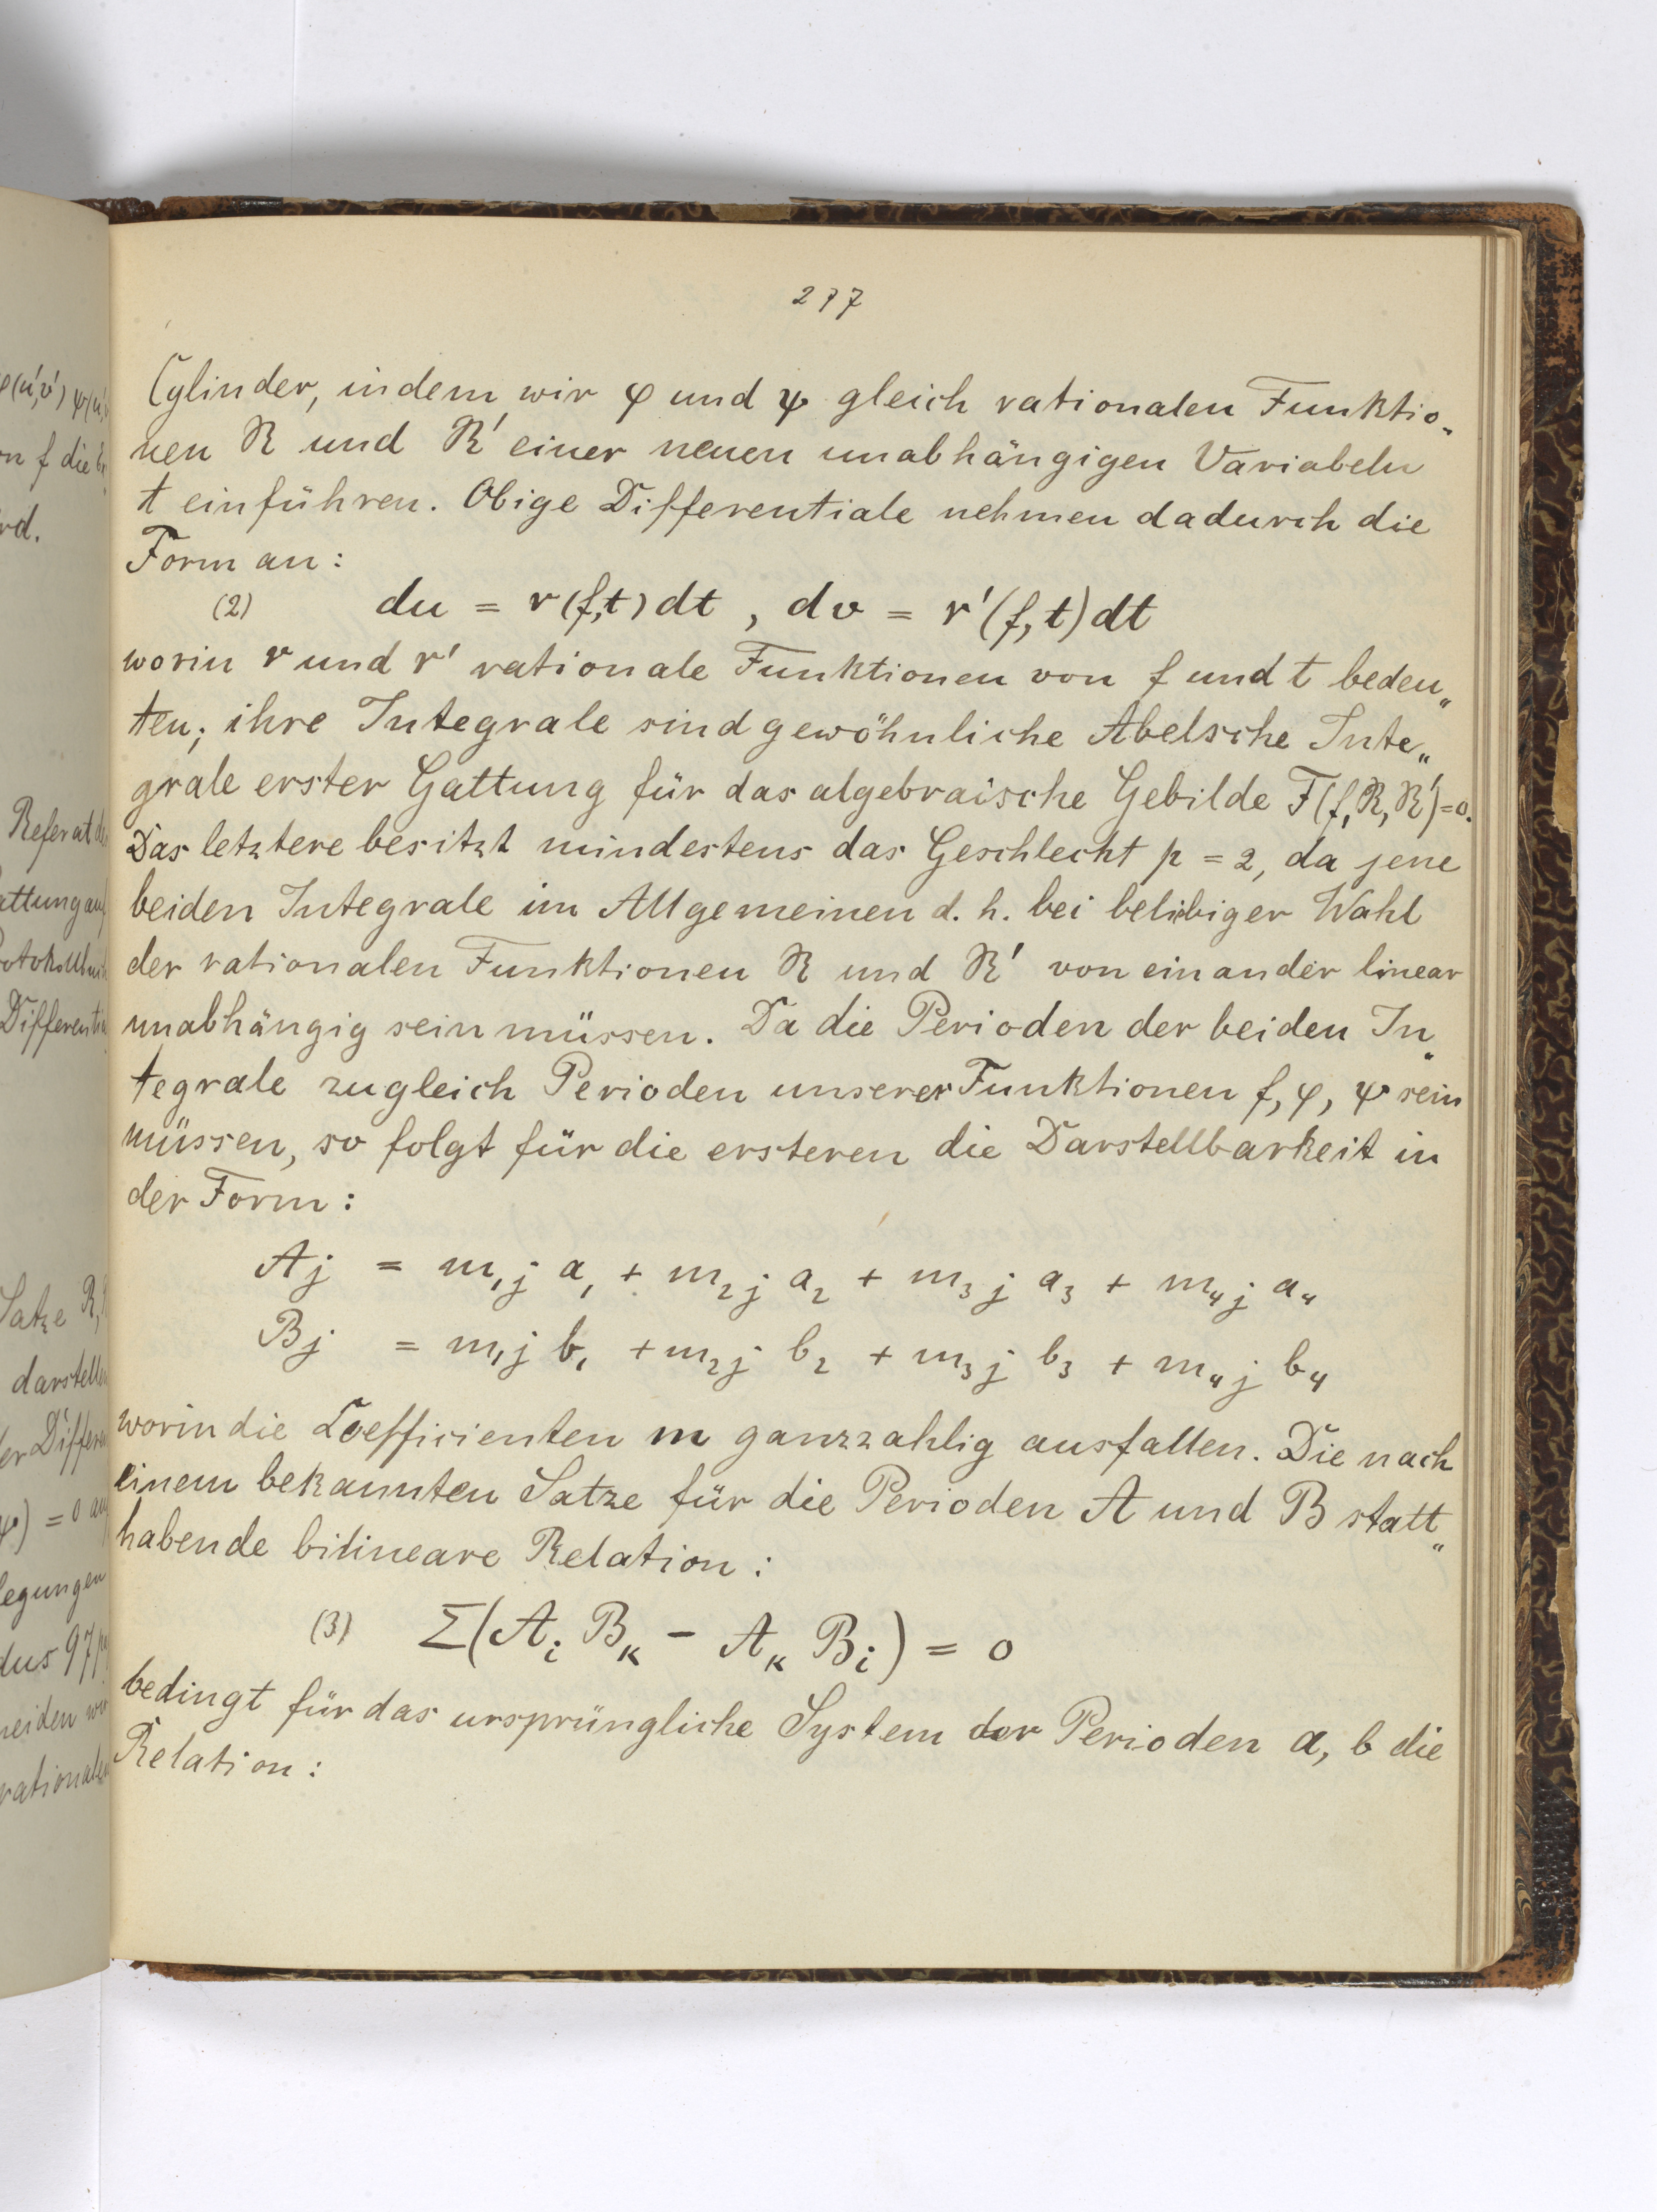 277
Cylinder, indem wir φ und ψ gleich rationalen Funktio„
nen R und R' einer neuen unabhängigen Variabeln
t einführen. Obige Differentiale nehmen dadurch die
Form an:
(2) du = r(f,t)dt , dv = r'(f,t)dt
worin r und r' rationale Funktionen von f und t bedeu„
ten; ihre Integrale sind gewöhnliche Abelsche Inte„
grale erster Gattung für das algebraische Gebilde F(f,R,R')=0.
Das letztere besitzt mindestens das Geschlecht p = 2, da jene
beiden Integrale im Allgemeinen d. h. bei belibiger Wahl
der rationalen Funktionen R und R' von einander linear
unabhängig sein müssen. Da die Perioden der beiden In„
tegrale zugleich Perioden unserer Funktionen f, φ, ψ sein
müssen, so folgt für die ersteren die Darstellbarkeit in
der Form:
Aj = m₁j a₁ + m₂j a₂ + m₃j a₃ + m₄j a₄
Bj = m₁j b₁ + m₂j b₂ + m₃j b₃ + m₄j b₄
worin die Coefficienten m ganzzahlig ausfallen. Die nach
einem bekannten Satze für die Perioden A und B statt„
habende bilineare Relation:
(3) Σ(Aᵢ Bₖ − Aₖ Bᵢ) = 0
bedingt für das ursprüngliche System der Perioden a, b die
Relation:
φ(u',v')
f die
Referat
darstellen
legungen